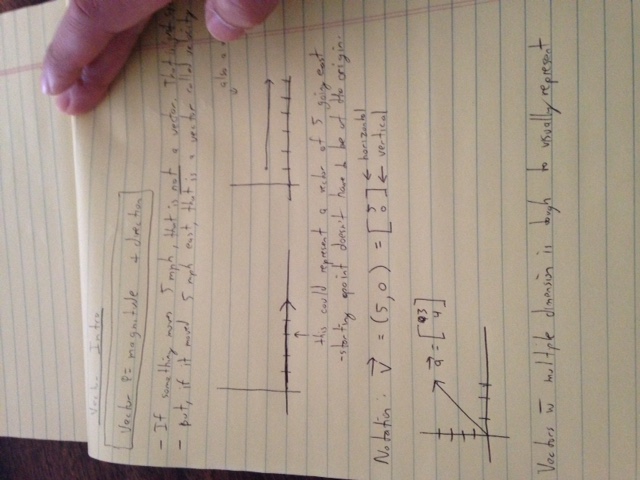 Vector Intro
Vector = magnitude + direction
- If something moves 5 mph, that is not a vector. That is
- but, if it moved 5 mph east, that is a vector called velocity.
also a
this could represent a vector of 5 going east
-starting point doesn't have to be at the origin.
Notation: V⃗ = (5,0) = [5 0] ← horizontal
← vertical
a⃗ = [3 4]
Vectors w multiple dimension is tough to visually represent